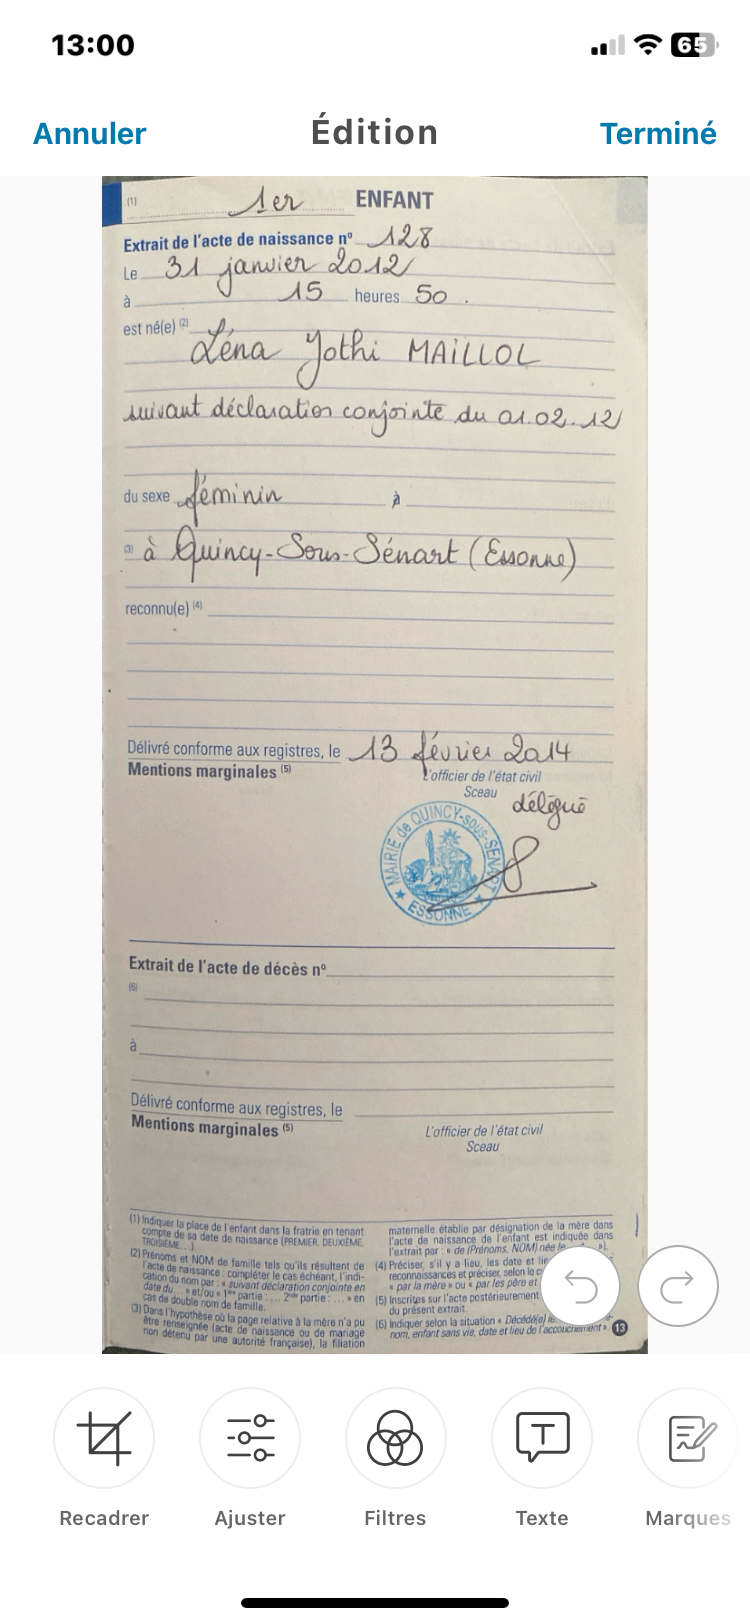 13:00
65
Annuler
Édition
Terminé
(1) 1er ENFANT
Extrait de l'acte de naissance nº 128
Le 31 janvier 2012
à 15 heures 50 .
est né(e) (2) Léna Yothi MAILLOL
suivant déclaration conjointe du 01.02.12
du sexe féminin à
(3) à Quincy-Sous-Sénart (Essonne)
reconnu(e) (4)
Délivré conforme aux registres, le 13 février 2014
Mentions marginales (5)
L'officier de l'état civil
Sceau
délégué
MAIRIE de QUINCY-sous-SENART
ESSONNE
Extrait de l'acte de décès nº
(6)
à
Délivré conforme aux registres, le
Mentions marginales (5)
L'officier de l'état civil
Sceau
(1) Indiquer la place de l'enfant dans la fratrie en tenant
compte de sa date de naissance (PREMIER, DEUXIÈME,
TROISIÈME...).
(2) Prénoms et NOM de famille tels qu'ils résultent de
l'acte de naissance : compléter le cas échéant, l'indi-
cation du nom par : « suivant déclaration conjointe en
date du... » et/ou « 1ère partie :... 2nde partie : ... » en
cas de double nom de famille.
(3) Dans l'hypothèse où la page relative à la mère n'a pu
être renseignée (acte de naissance ou de mariage
non détenu par une autorité française), la filiation
maternelle établie par désignation de la mère dans
l'acte de naissance de l'enfant est indiquée dans
l'extrait par : « de (Prénoms, NOM) née le
(4) Préciser, s'il y a lieu, les date et
reconnaissances et préciser, selon le
« par la mère » ou « par les père et
(5) Inscrites sur l'acte postérieurement
du présent extrait.
(6) Indiquer selon la situation « Décédé(e)
nom, enfant sans vie, date et lieu de l'accouchement ».
13
Recadrer
Ajuster
Filtres
T
Texte
Marques